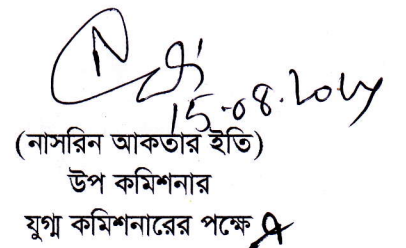 15-08.2024
(নাসরিন আকতার ইতি)
উপ কমিশনার
যুগ্ম কমিশনারের পক্ষে